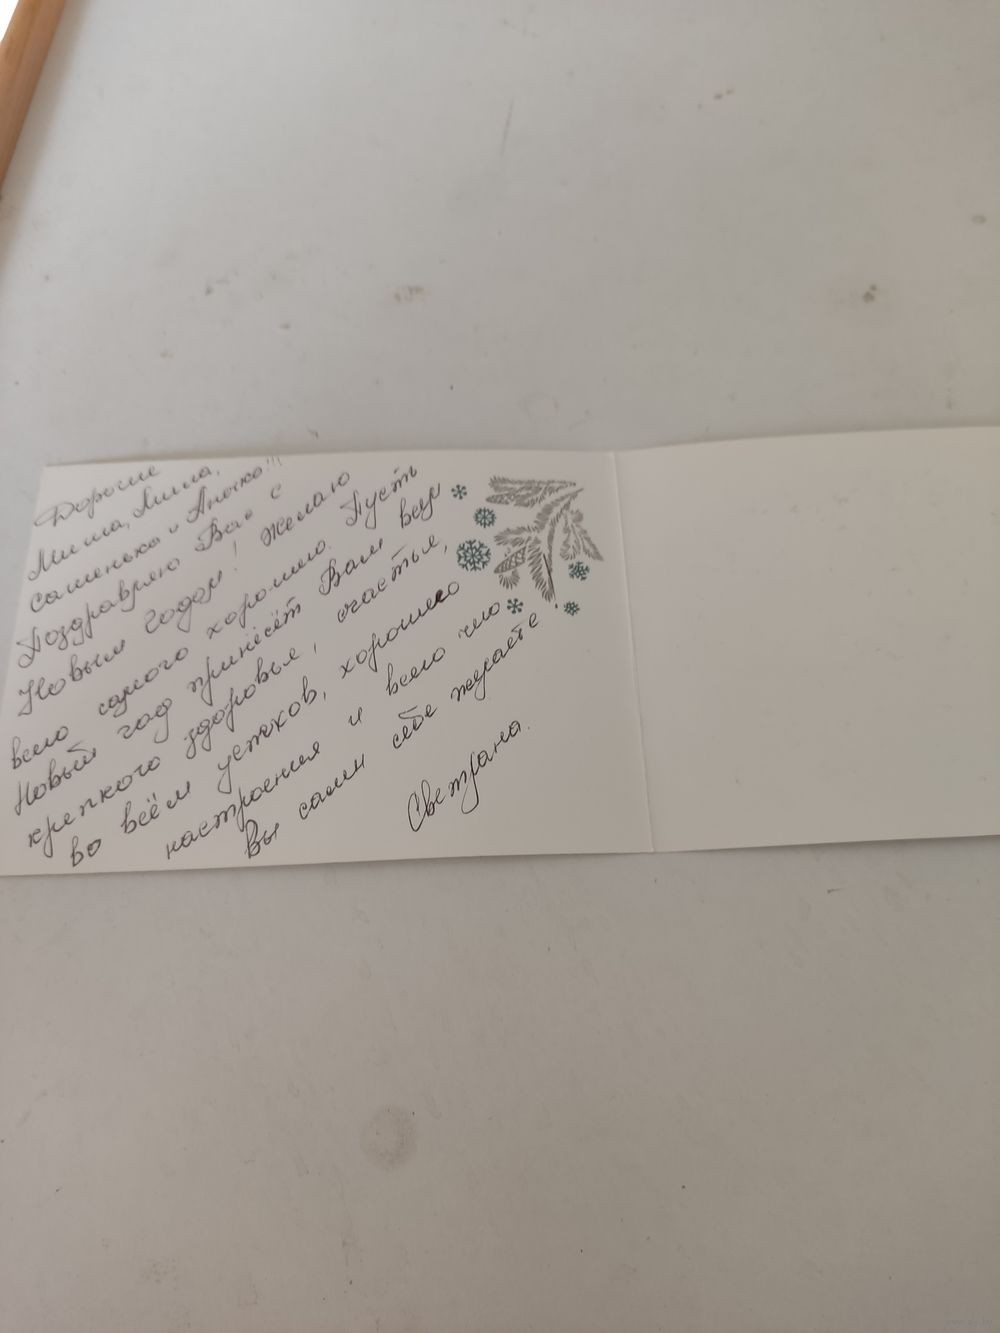 Дорогие
Миша, Лина,
Сашенька и Анечка!!!
Поздравляю Вас с
Новым годом! Желаю
всего самого хорошего. Пусть
Новый год принесёт Вам всем
крепкого здоровья, счастья,
во всём успехов, хорошего
настроения и всего чего
Вы сами себе желаете.
Светлана.